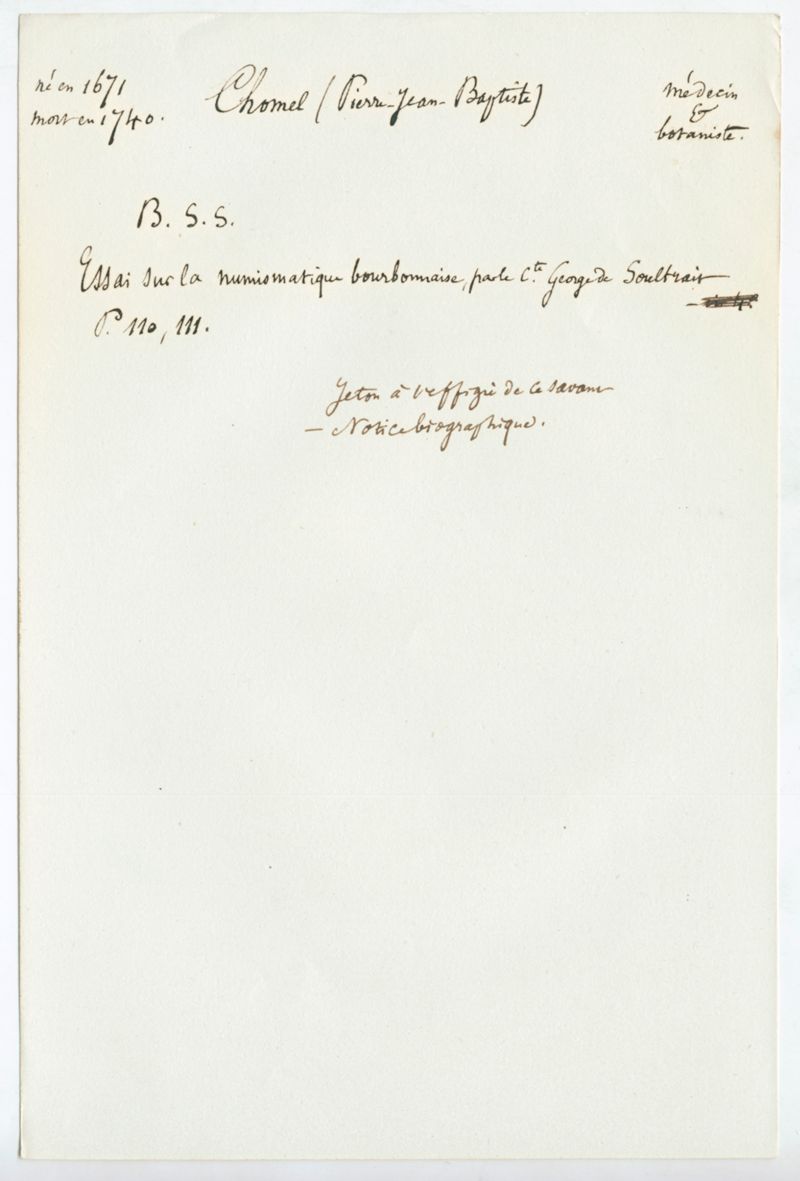 né en 1671
mort en 1740.
Chomel (Pierre-Jean-Baptiste)
médecin
&
botaniste.
B. S. S.
Essai sur la numismatique bourbonnaise, par le C.te George de Soultrait
P. 110, 111.
Jeton à l'effigie de ce savant
— Notice biographique.